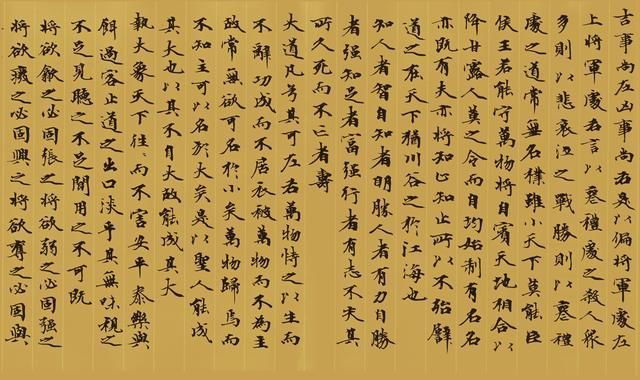 吉事尚左凶事尚右是以偏將軍處左
上將軍處右言以喪禮處之殺人眾
多則以悲哀泣之戰勝則以喪禮
處之道常無名樸雖小天下莫能臣
侯王若能守萬物將自賓天地相合以
降甘露人莫之令而自均始制有名名
亦既有夫亦將知止知止所以不殆譬
道之在天下猶川谷之於江海也
知人者智自知者明勝人者有力自勝
者強知足者富強行者有志不失其
所久死而不亡者壽
大道汎兮其可左右萬物恃之以生而
不辭功成而不居衣被萬物而不為主
故常無欲可名於小矣萬物歸焉而
不知主可以名於大矣是以聖人能成
其大也以其不自大故能成其大
執大象天下往〻而不害安平泰樂與
餌過客止道之出口淡乎其無味視之
不足見聽之不足聞用之不可既
將欲歙之必固張之將欲弱之必固強之
將欲廢之必固興之將欲奪之必固與